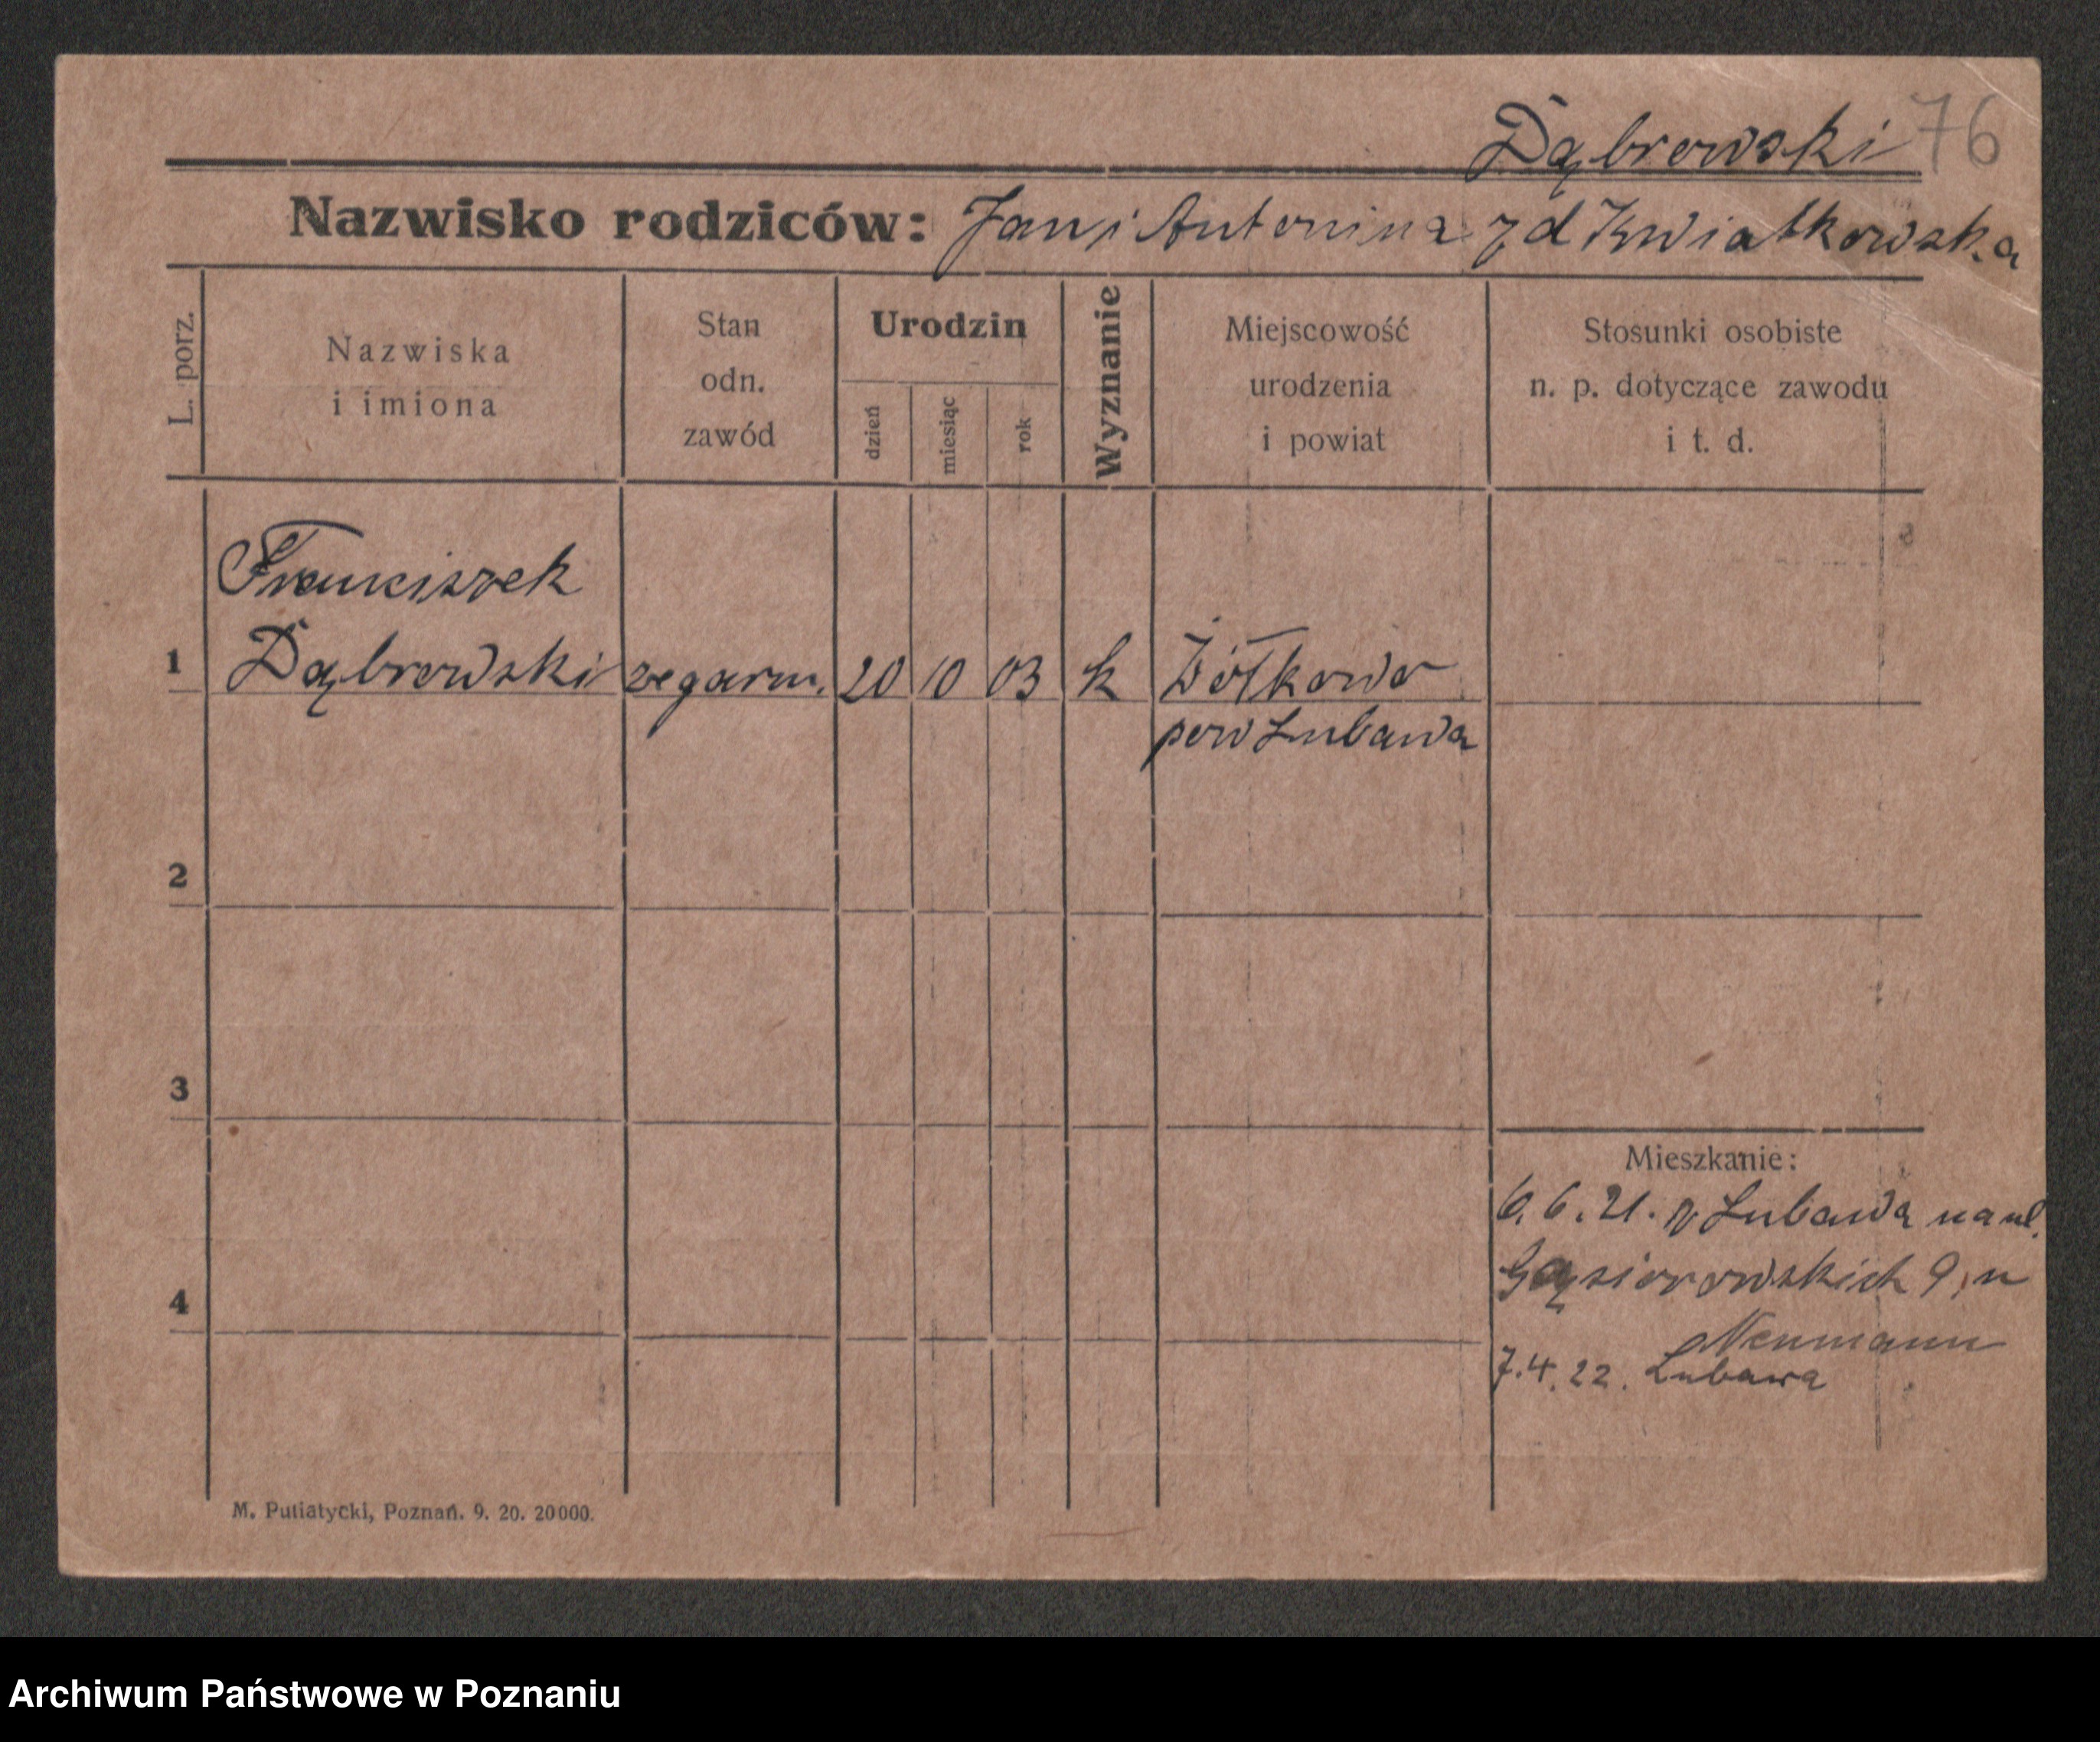 Dąbrowski 76
Nazwisko rodziców: Jan i Antonina z d Kwiatkowska
L. porz.
Nazwiska
i imiona
Stan
odn.
zawód
Urodzin
dzień
miesiąc
rok
Wyznanie
Miejscowość
urodzenia
i powiat
Stosunki osobiste
n. p. dotyczące zawodu
i t. d.
Franciszek
1 Dąbrowski zegarm. 20 10 03 k Żółkowo
pow Lubawa
2
3
Mieszkanie:
6. 6. 21. z Lubawa na ul.
Gąsiorowskich 9, u
4
Neumann
7. 4. 22. Lubawa
M. Putiatycki, Poznań. 9. 20. 20000.
Archiwum Państwowe w Poznaniu